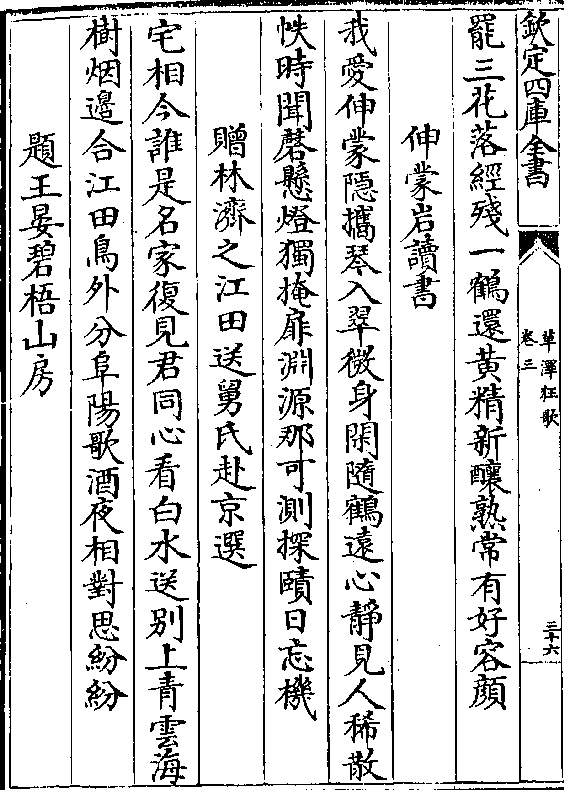 欽定四庫全書
草澤狂歌
卷三
三十六
罷三花落經殘一鶴還黄精新釀熟常有好容顔
伸蒙岩讀書
我愛伸蒙隠攜琴入翠微身閑隨鶴遠心靜見人稀散
帙時聞磬懸燈獨掩扉淵源那可測探賾日忘機
贈林濟之江田送舅氏赴京選
宅相今誰是名家復見君同心看白水送别上青雲海
樹烟邉合江田鳥外分阜陽歌酒夜相對思紛紛
題王晏碧梧山房